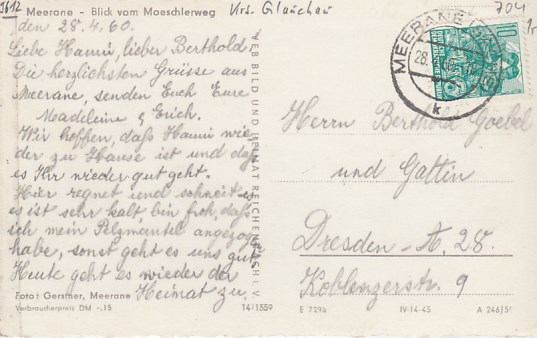 3612
Meerane - Blick vom Moeschlerweg
Krs. Glauchau
704
den 28.4.60.
Liebe Hanni, lieber Berthold.
Die herzlichsten Grüsse aus
Meerane, senden Euch Eure
Madeleine & Erich.
Wir hoffen, daß Hanni wie
der zu Hause ist und daß
es Ihr wieder gut geht.
Hier regnet und schneit es
es ist sehr kalt bin froh, daß
ich mein Pelzmantel angezogen
habe, sonst geht es uns gut
Heute geht es wieder der
Heimat zu.
Foto: Gerstner, Meerane
Verbraucherpreis DM -,15
14/1559
BILD UND HEIMAT REICHENBACH i. V.
MEERANE
k
10
Herrn Berthold Goebel
und Gattin
Dresden - A. 28.
Koblenzerstr. 9
E 7294
IV-14-45
A 246/59